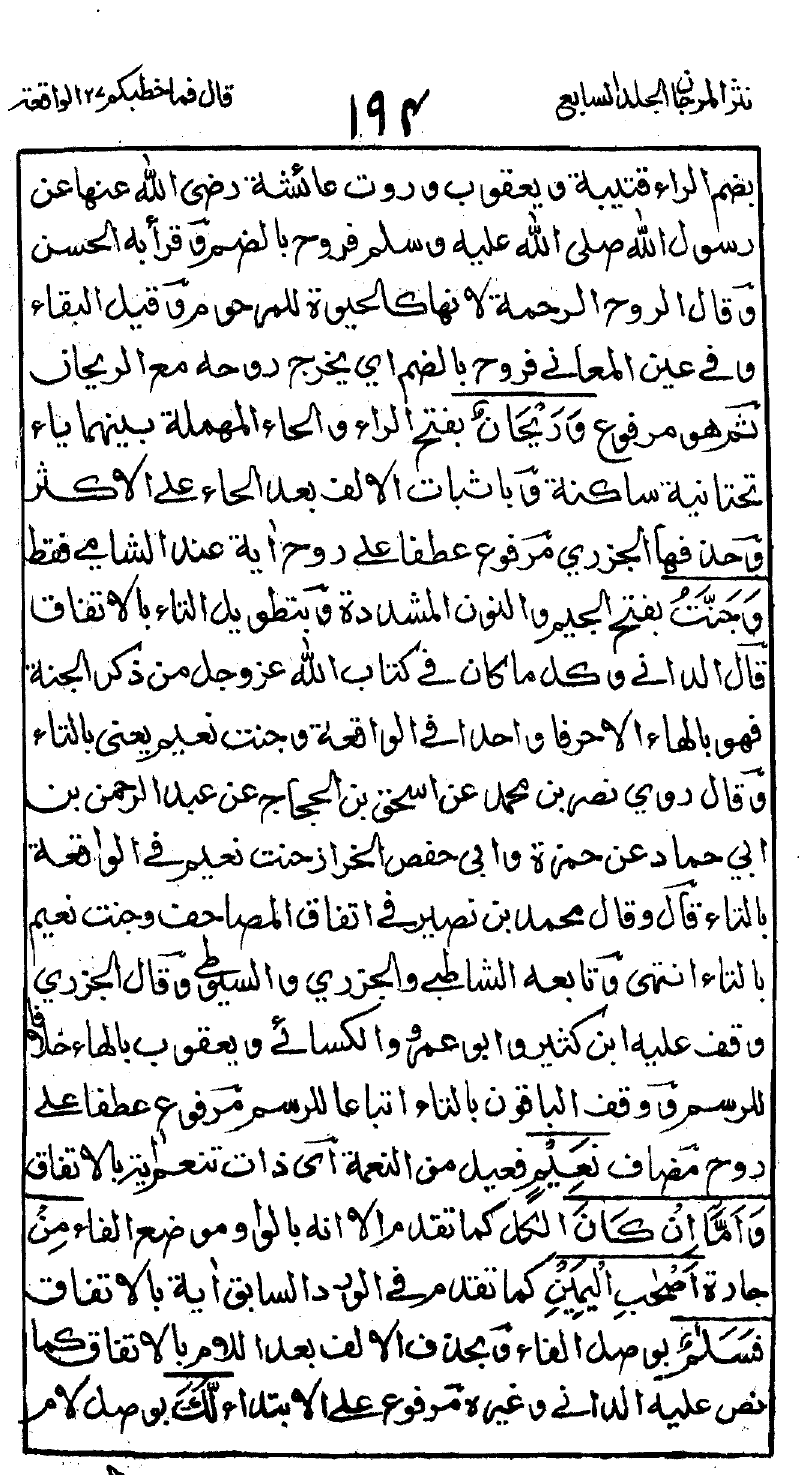 نثر المرجان الجلد السابع
١٩٤
قال فما خطبكم ٢٧ الواقعة
بضم الراء قتيبة ويعقوب وروت عائشة رضى الله عنها عن
رسول الله صلى الله عليه وسلم فروح بالضم وَقرأ به الحسن
وَقال الروح الرحمة لانها كالحيوة للمرحوم وَقيل البقاء
وفي عين المعاني فروح بالضم اي يخرج روحه مع الريحان
ثم هو مرفوع وَرَيْحَانٌ بفتح الراء والحاء المهملة بينهما ياء
تحتانية ساكنة وَباثبات الالف بعد الحاء على الاكثر
وَحذفها الجزري مَرفوع عطفا على روح اٰية عند الشامي فقط
وَجَنَّتُ بفتح الجيم والنون المشددة وَبتطويل التاء بالاتفاق
قَال الداني وكل ما كان في كتاب الله عز وجل من ذكر الجنة
فهو بالهاء الا حرفا واحدا في الواقعة وجنت نعيم يعنى بالتاء
وَقال روي نصر بن محمد عن اسحٰق بن الحجاج عن عبد الرحمن بن
ابي حماد عن حمزة وابي حفص الخراز جنت نعيم في الواقعة
بالتاء قَال وقال محمد بن نصير في اتفاق المصاحف وجنت نعيم
بالتاء انتهى وَتابعه الشاطبي والجزري والسيوطي وَقال الجزري
وقف عليه ابن كثير وابو عمرو والكسائي ويعقوب بالهاء خلافا
للرسم وَوقف الباقون بالتاء اتباعا للرسم مَرفوع عطفا على
روح مَضاف نَعِيْمٍ فعيل من النعمة اَى ذات تنعم اٰية بالاتفاق
وَاَمَّا اِنْ كَانَ الكل كما تقدم الا انه بالواو موضع الفاء مِنْ
جارة اَصْحٰبِ الْيَمِيْنِ كما تقدم في الورد السابق اٰية بالاتفاق
فَسَلٰمٌ بوصل الفاء وَبحذف الالف بعد اللام بالاتفاق كما
نص عليه الداني وغيره مَرفوع على الابتداء لَّكَ بوصل لام